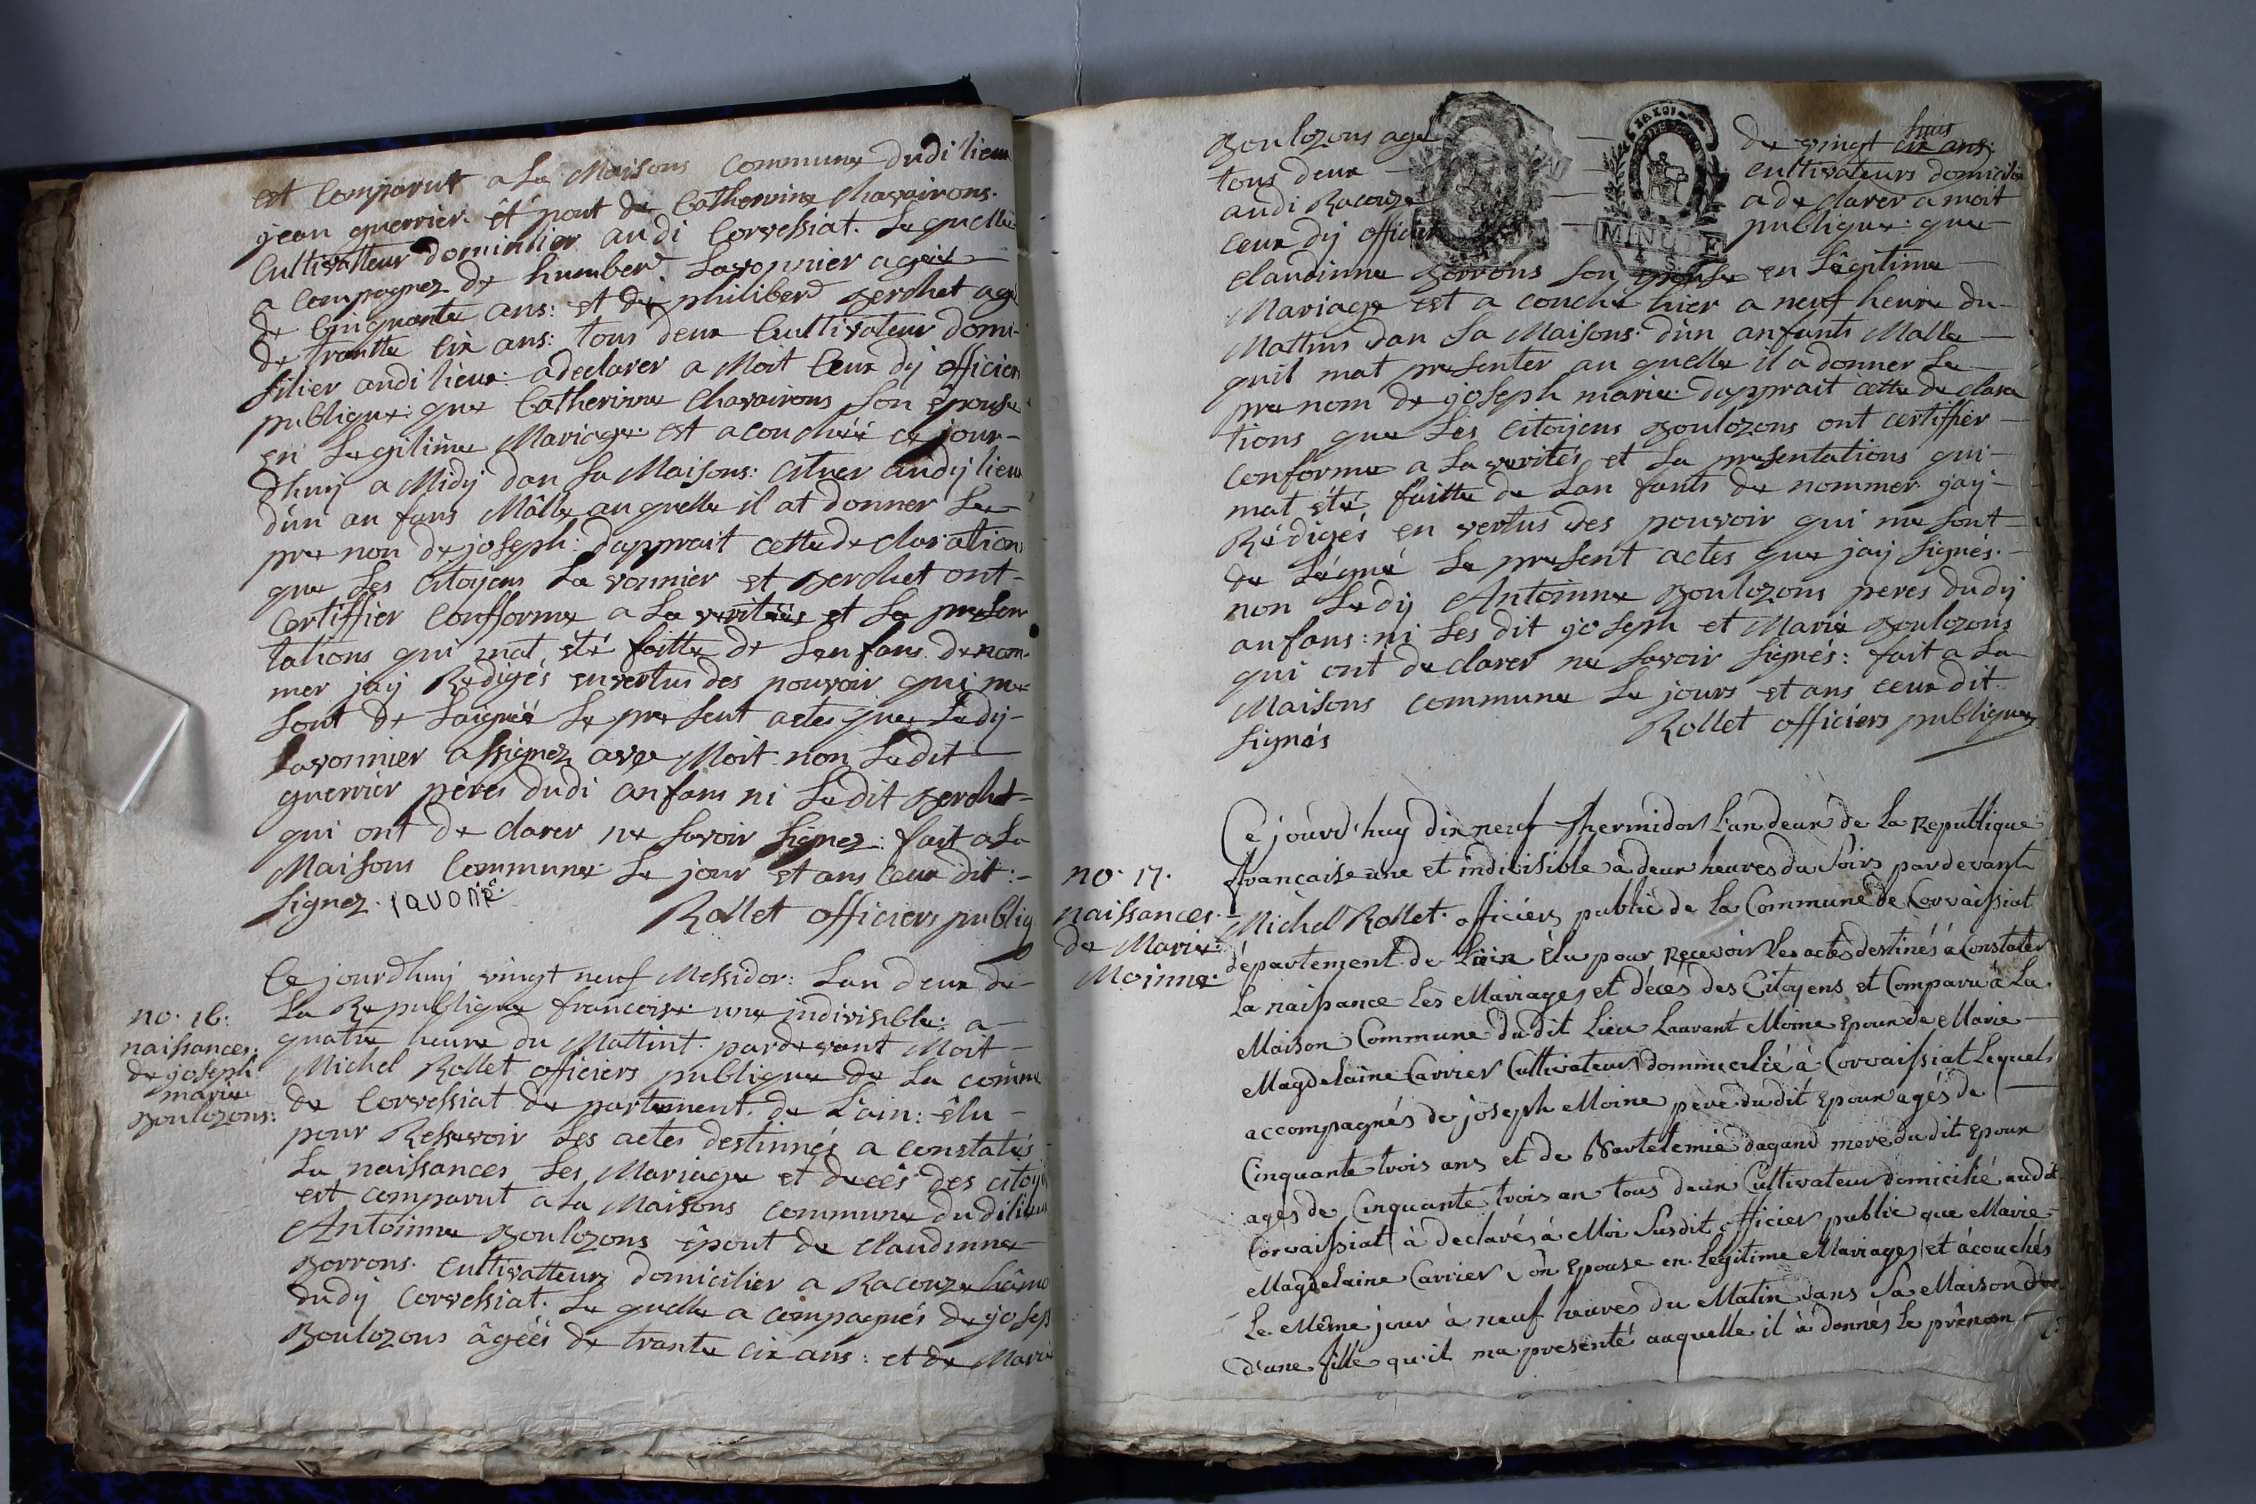 est Comparut a La Maisons Commune dudi lieux
jean guerrier êt pout de Catherinne Chavairons.
Cultivatteur dominilier audi Corvessiat. Le quelle
a Compagnez de humber Lavonnier agéé
de Cinquante ans: et de philiber gerchet agé
de trantte cix ans: tous deux Cultivateur domi-
silier audi lieux: a declarer a Moit Ceux dy officiers
publique: que Catherinne Chavairons son épouse
en Legitime Mariage est acouchéé ce jour-
dhuy a Midy dan sa Maisons: cituer audy lieux
d'un an fans Mâlle au quelle il at donner Le
pre non de joseph: dapprait cette de claration
que Les Citoyens La vonnier et gerchet ont-
Certiffier Confforme a La veritéés et La presen
tations qui mat été faitte de Lenfans de nom-
mer jay Redigés envertus des pouvoir qui me
sont de Laignéé Le pre sent actes que Ledy-
Lavonnier assignez avec Moit non Ledit
guerrier pères dudi anfans ni Ledit gerchet-
qui ont de clarer ne savoir signez: fait a La
Maisons Commune Le jour et ans Ceux dit:-
signez. lavoné
Rollet officiers publiq
no. 16:
naissances.
de joseph
marie
goulozons:
Ce jourdhuy vingt neuf Messidor: Lan deux de
La Republique francoise une indivisible: a
quatre heure du Mattint pardevant Moit-
Michel Rollet officiers publique de La comme
de Corvessiat de partement. de L'ain: êlu-
pour Ressevoir Les actes destinnés a constatés
La naissances Les, Mariage et decês des citoye
est comparut a La Maisons commune dudilieux
Antoinne goulozons êpout de claudinne
gorrons. cultivatteurs domicilier a Racouze hâmo
dudy Corvessiat. Le quelle a compagnés de joseph
goulozons âgéés de trante cix ans: et de Marie
goulozons agé de vingt huis cix ans:
tous deux cultivateurs domicilie
audi Racouze a de clarer a moit
ceux dy officier publique: que
MINUTE
claudinne gorrons son epouse en Lêgitime
Mariage est a couché hier a neuf heure du
Mattins dan sa Maisons. d'un anfants Malle
quil mat presenter au quelle il a donner Le
pre nom de joseph marie: dapprait cette de clara
tions que Les citoyens goulozons ont certiffier
conforme a La verités et La presentations qui-
mat été faitte de Lan fants de nommer jay-
Rédigés en vertus des pouvoir qui me sont
de Légné Le present actes que jay signés.
non Ledy Antoinne goulozons peres dudy
anfans: ni Les dit joseph et Marie goulozons
qui ont de clarer ne savoir signés: fait a La
Maisons commune Le jours et ans ceux dit
signés
Rollet officiers publiques
no. 17.
naissances.
de Marie.
Moinne.
Ce jourd'huy dix neuf thermidor L'an deux de La Republique
francaise une et indivisible à deux heures du Soirs pardevant
Michel Rollet. officiers public de La Commune de Corvaissiat
département de L'ain Elu pour Recevoir les actes destinés à Constater
La naissance Les Mariages et décès des Citoyens et Comparu à La
Maison Commune du dit Lieu Laurant Moine Epoux de Marie
Magdelaine Carrier Cultivateur dommicilié à Corvaissiat Lequel
accompagnés de joseph Moine père du dit Epoux agés de
Cinquante trois ans et de Bartelemie dagand mere du dit Epoux
agés de Cinquante trois an tous deux Cultivateur domicilié audit
Corvaissiat à declarés à Moi Susdit officier public que Marie
Magdelaine Carrier Son Epouse en Legitime Mariages et àcouchés
Le Même jour à neuf heures du Matin dans Sa Maison
d'une fille qu'il ma presenté auquelle il à donnés Le prénom